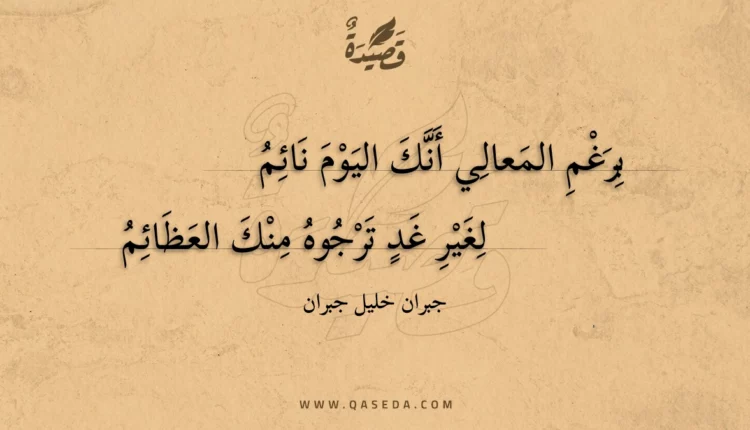 قَصِيدَةٌ
بِرَغْمِ المَعالِي أَنَّكَ اليَوْمَ نَائِمُ
لِغَيْرِ غَدٍ تَرْجُوهُ مِنْكَ العَظَائِمُ
جبران خليل جبران
WWW.QASEDA.COM